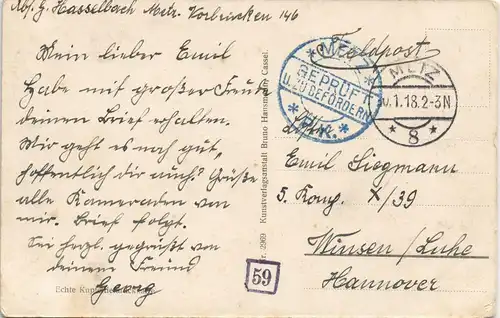 Abs. G. Hasselbach Metz. Vorbrücken 146
Mein lieber Emil
Habe mit großer Freude
deinen Brief erhalten.
Mir geht es noch gut,
hoffentlich dir auch? Grüße
alle Kameraden von
mir. Brief folgt.
Sei herzl. gegrüßt von
deinem Freund
Georg
Echte Kupfertiefdruckkarte
Nr. 2969 Kunstverlagsanstalt Bruno Hansmann, Cassel.
Feldpost
*METZ*
GEPRÜFT
U. ZU BEFÖRDERN
METZ
1.18.2-3N
* 8 *
Emil Siegmann
5. Komp. X/39
Winsen/Luhe
Hannover
59